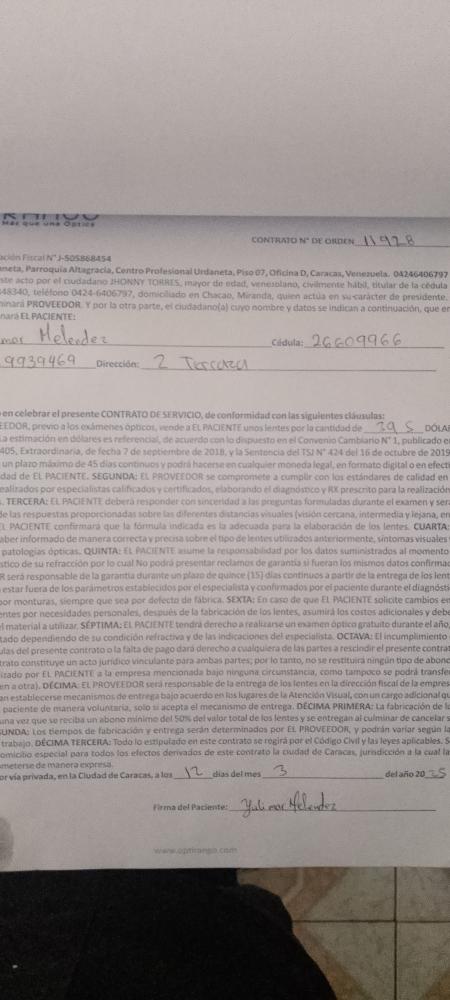 Más que una Óptica
CONTRATO N° DE ORDEN 11928
ación Fiscal N° J-505868454
neta, Parroquia Altagracia, Centro Profesional Urdaneta, Piso 07, Oficina D, Caracas, Venezuela. 04246406797
ste acto por el ciudadano JHONNY TORRES, mayor de edad, venezolano, civilmente hábil, titular de la cédula
48340, teléfono 0424-6406797, domiciliado en Chacao, Miranda, quien actúa en su carácter de presidente.
minará PROVEEDOR. Y por la otra parte, el ciudadano(a) cuyo nombre y datos se indican a continuación, que en
nará EL PACIENTE:
mar Melendez Cédula: 26609966
9939469 Dirección: 2 Terraza
en celebrar el presente CONTRATO DE SERVICIO, de conformidad con las siguientes cláusulas:
EEDOR, previo a los exámenes ópticos, vende a EL PACIENTE unos lentes por la cantidad de 39 5 DÓLA
La estimación en dólares es referencial, de acuerdo con lo dispuesto en el Convenio Cambiario N° 1, publicado e
405, Extraordinaria, de fecha 7 de septiembre de 2018, y la Sentencia del TSJ N° 424 del 16 de octubre de 2019
un plazo máximo de 45 días continuos y podrá hacerse en cualquier moneda legal, en formato digital o en efecti
dad de EL PACIENTE. SEGUNDA: EL PROVEEDOR se compromete a cumplir con los estándares de calidad en
ealizados por especialistas calificados y certificados, elaborando el diagnóstico y RX prescrito para la realización
. TERCERA: EL PACIENTE deberá responder con sinceridad a las preguntas formuladas durante el examen y ser
de las respuestas proporcionadas sobre las diferentes distancias visuales (visión cercana, intermedia y lejana, en
EL PACIENTE confirmará que la fórmula indicada es la adecuada para la elaboración de los lentes. CUARTA:
aber informado de manera correcta y precisa sobre el tipo de lentes utilizados anteriormente, síntomas visuales
patologías ópticas. QUINTA: EL PACIENTE asume la responsabilidad por los datos suministrados al momento
stico de su refracción por lo cual No podrá presentar reclamos de garantía si fueran los mismos datos confirmac
R será responsable de la garantía durante un plazo de quince (15) días continuos a partir de la entrega de los lent
estar fuera de los parámetros establecidos por el especialista y confirmados por el paciente durante el diagnósti
por monturas, siempre que sea por defecto de fábrica. SEXTA: En caso de que EL PACIENTE solicite cambios en
entes por necesidades personales, después de la fabricación de los lentes, asumirá los costos adicionales y debe
el material a utilizar. SÉPTIMA: EL PACIENTE tendrá derecho a realizarse un examen óptico gratuito durante el año,
tado dependiendo de su condición refractiva y de las indicaciones del especialista. OCTAVA: El incumplimiento
ulas del presente contrato o la falta de pago dará derecho a cualquiera de las partes a rescindir el presente contrat
trato constituye un acto jurídico vinculante para ambas partes; por lo tanto, no se restituirá ningún tipo de abono
izado por EL PACIENTE a la empresa mencionada bajo ninguna circunstancia, como tampoco se podrá transfer
en a otra). DÉCIMA: EL PROVEEDOR será responsable de la entrega de los lentes en la dirección fiscal de la empres
an establecerse mecanismos de entrega bajo acuerdo en los lugares de la Atención Visual, con un cargo adicional qu
paciente de manera voluntaria, solo si acepta el mecanismo de entrega. DÉCIMA PRIMERA: La fabricación de l
una vez que se reciba un abono mínimo del 50% del valor total de los lentes y se entregan al culminar de cancelar s
SUNDA: Los tiempos de fabricación y entrega serán determinados por EL PROVEEDOR, y podrán variar según la
trabajo. DÉCIMA TERCERA: Todo lo estipulado en este contrato se regirá por el Código Civil y las leyes aplicables. S
omicilio especial para todos los efectos derivados de este contrato la ciudad de Caracas, jurisdicción a la cual la
meterse de manera expresa.
or vía privada, en la Ciudad de Caracas, a los 12 días del mes 3 del año 2025
Firma del Paciente: Yulimar Melendez
www.optirango.com